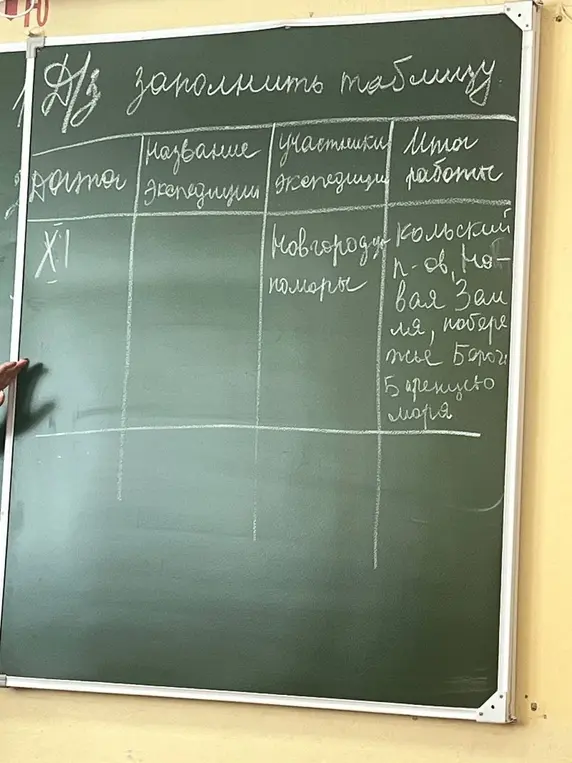 Д/з заполнить таблицу
Дата
Название
экспедиции
участники
экспедиции
Итог
работы
XI
Новгородцы
поморы
Кольский
п-ов, Но-
вая Зем
ля, побере
жье
Баренцево
моря